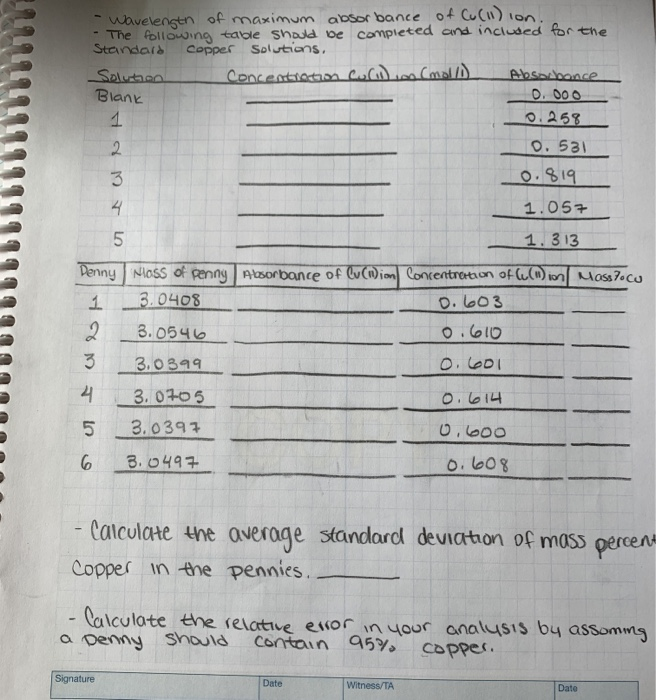 - Wavelength of maximum absorbance of Cu(II) ion.
- The following table should be completed and included for the
Standard Copper Solutions.
Solution Concentration Cu(II) ion (mol/l) Absorbance
Blank 0.000
1 0.258
2 0.531
3 0.819
4 1.057
5 1.313
Penny Mass of penny Absorbance of Cu(II) ion Concentration of Cu(II) ion Mass % Cu
1 3.0408 0.603
2 3.0546 0.610
3 3.0399 0.601
4 3.0705 0.614
5 3.0397 0.600
6 3.0497 0.608
- Calculate the average standard deviation of mass percent
Copper in the pennies.
- Calculate the relative error in your analysis by assoming
a penny should contain 95% copper.
Signature Date Witness/TA Date